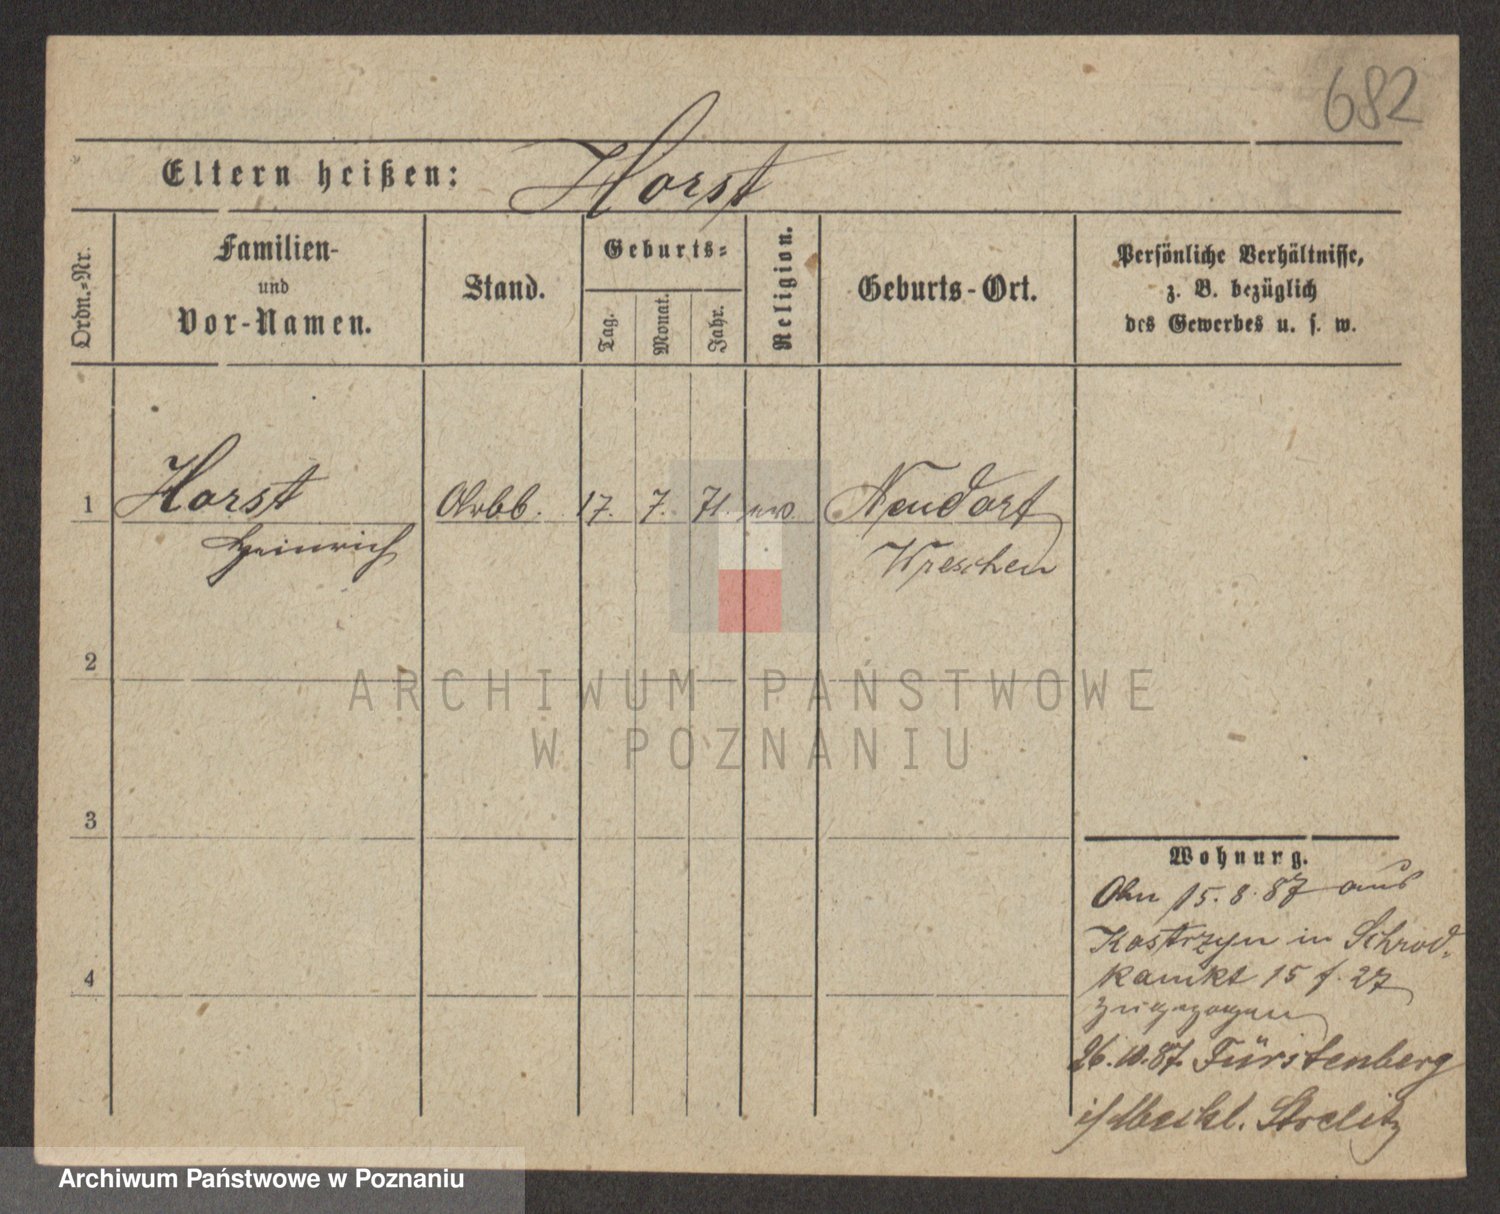 682
Eltern heißen: Horst
Ordn.-Nr.
Familien-
und
Vor-Namen.
Stand.
Geburts-
Tag.
Monat.
Jahr.
Religion.
Geburts-Ort.
Persönliche Verhältnisse,
z. B. bezüglich
des Gewerbes u. s. w.
1 Horst 17. 7. 71. ev. Neudorf
Heinrich Wreschen
2
ARCHIWUM PAŃSTWOWE
W POZNANIU
3
Wohnurg.
15. 8. 87 aus
Kostrzyn in Schrod.
15 f. 27
zugezogen
26.10.87. Fürstenberg
i/Meckl. Strelitz
4
Archiwum Państwowe w Poznaniu